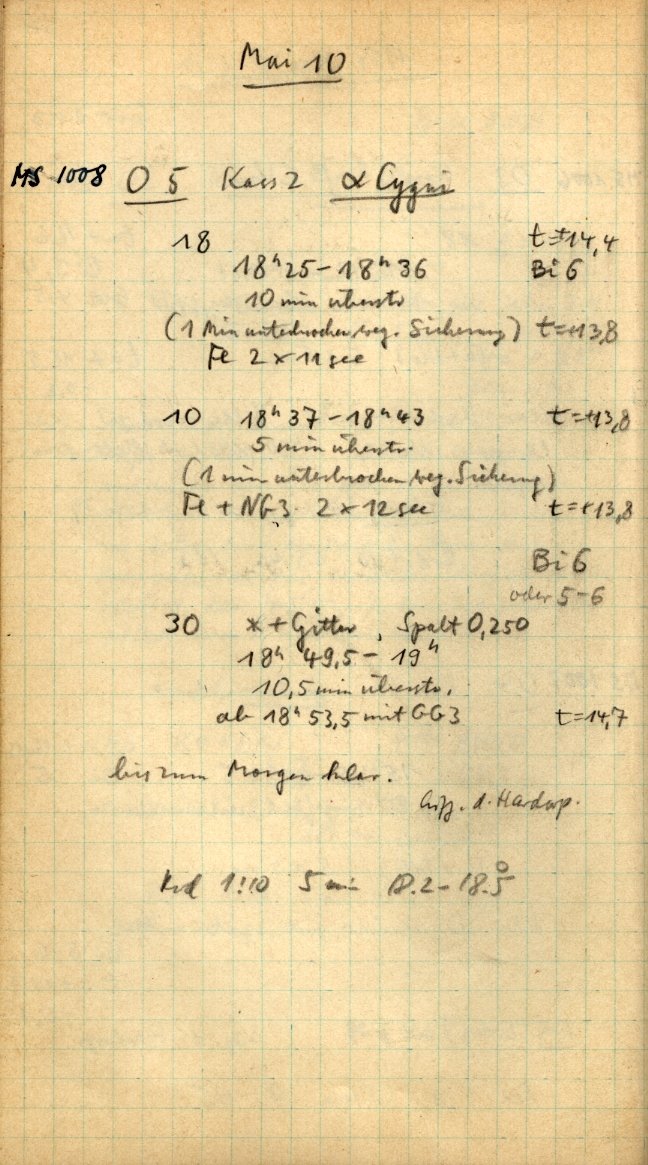 Mai 10
MS 1008 O 5 Kass 2 α Cygni
18 t=+14,4
18ʰ25-18ʰ36 Bi 6
10 min überstr.
(1 Min unterbrochen weg. Sicherung) t=+13,8
Fe 2 × 11 sec
10 18ʰ37-18ʰ43 t=+13,8
5 min überstr.
(1 min unterbrochen weg. Sicherung)
Fe + NG3. 2 × 12 sec t=+13,8
Bi 6
oder 5-6
30 * + Gitter, Spalt 0,250
18ʰ 49,5 - 19ʰ
10,5 min überstr.
ab 18ʰ 53,5 mit GG3 t=14,7
bis zum Morgen klar.
d. Hardorp.
1:10 5 min 18.2-18.5